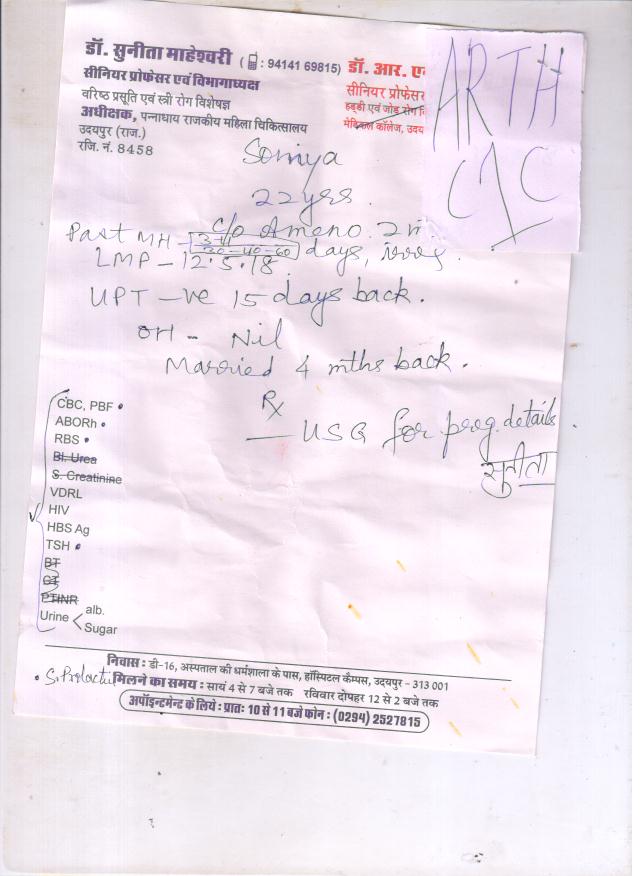 डॉ. सुनीता माहेश्वरी ( : 94141 69815)
सीनियर प्रोफेसर एवं विभागाध्यक्ष
वरिष्ठ प्रसूति एवं स्त्री रोग विशेषज्ञ
अधीक्षक, पन्नाधाय राजकीय महिला चिकित्सालय
उदयपुर (राज.)
रजि. नं. 8458
डॉ. आर. ए
सीनियर प्रोफेसर
हड्डी एवं जोड़ रोग
मेडिकल कॉलेज, उदय
ARTH
C1C
Somya
22yrs.
c/o Ameno. 2m
Past MH - 30-40-60 days,
LMP - 12.5.18
UPT -ve 15 days back.
OH - Nil
Married 4 mths back.
Rx
— USG for preg. details.
सुनीता
CBC, PBF •
ABORh •
RBS •
Bl. Urea
S. Creatinine
VDRL
HIV
HBS Ag
TSH •
BT
CT
PTINR
Urine < alb.
Sugar
निवास : डी-16, अस्पताल की धर्मशाला के पास, हॉस्पिटल कैम्पस, उदयपुर - 313 001
• S. Prolactin
मिलने का समय : सायं 4 से 7 बजे तक रविवार दोपहर 12 से 2 बजे तक
अपॉइन्टमेन्ट के लिये : प्रातः 10 से 11 बजे फोन : (0294) 2527815